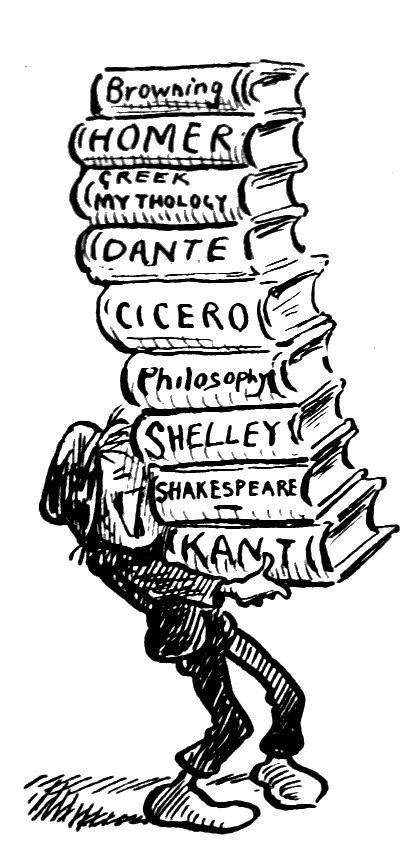 Browning
HOMER
GREEK
MYTHOLOGY
DANTE
CICERO
Philosophy
SHELLEY
SHAKESPEARE
KANT